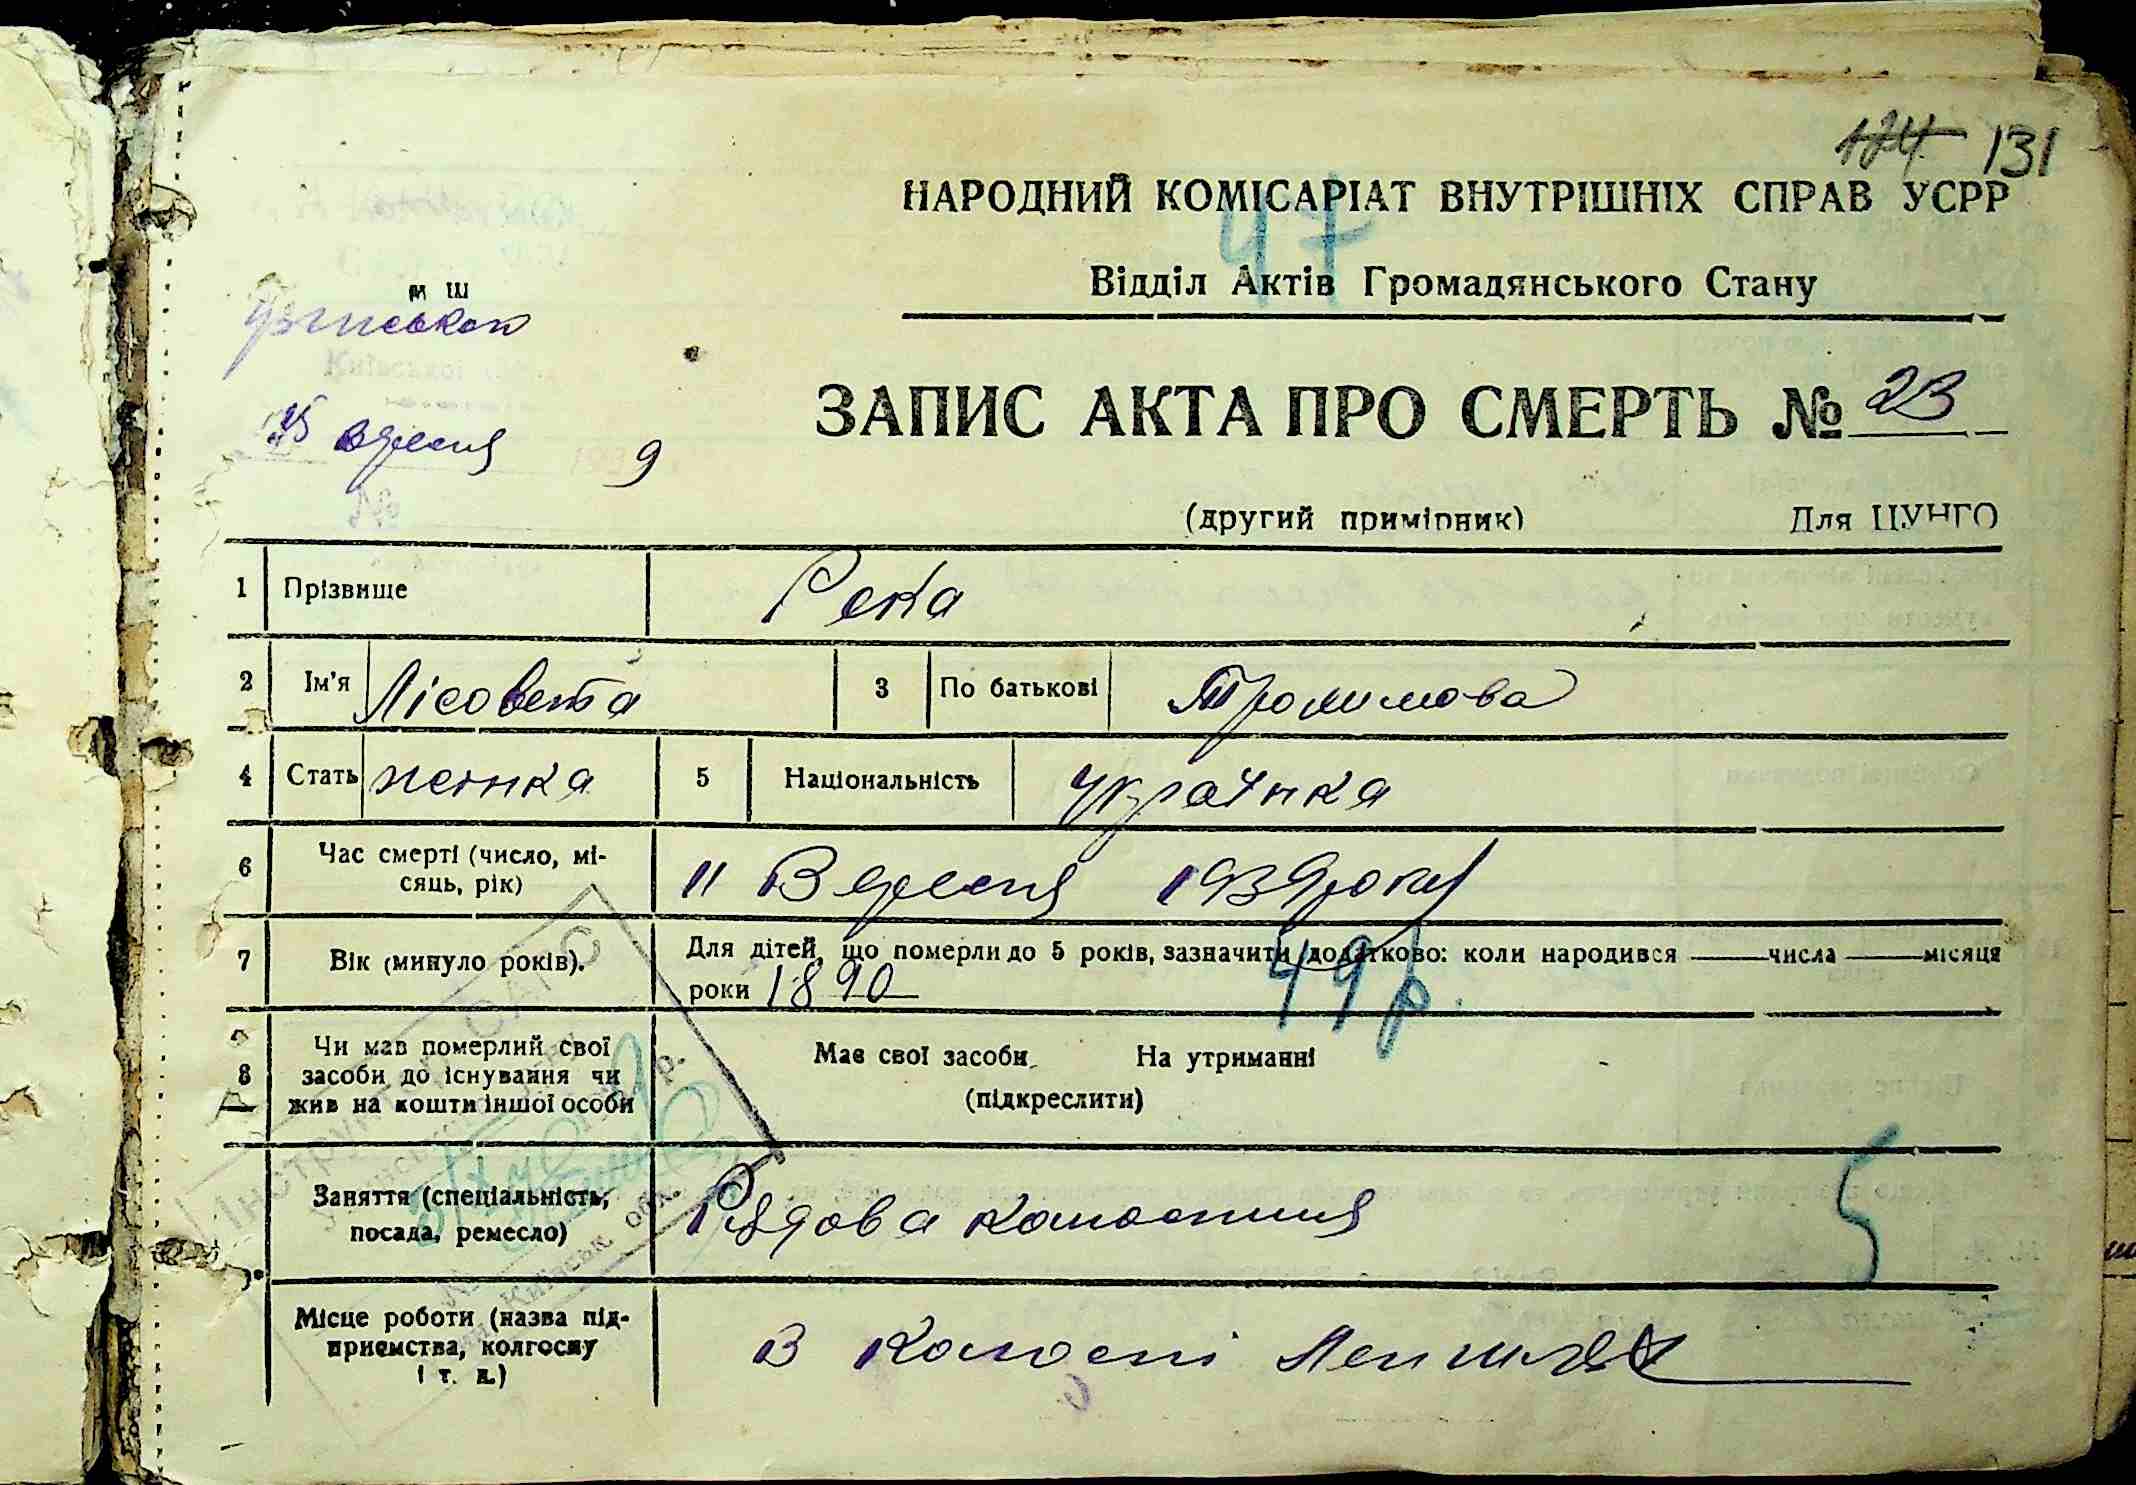 124 131
НАРОДНИЙ КОМІСАРІАТ ВНУТРІШНІХ СПРАВ УСРР
47
Відділ Актів Громадянського Стану
Київської
ЗАПИС АКТА ПРО СМЕРТЬ № 23
15 вересня 1939
№
(другий примірник) Для ЦУНГО
1 Прізвище Река
2 Ім'я Лісовета 3 По батькові Трохимова
4 Стать женка 5 Національність українка
6 Час смерті (число, мі-
сяць, рік) 11 Вересня 1939 року
7 Вік (минуло років). Для дітей, що померли до 5 років, зазначити додатково: коли народився —— числа —— місяця
роки 1890 49 р.
8 Чи мав померлий свої
засоби до існування чи
жив на кошти іншої особи
Має свої засоби На утриманні
(підкреслити)
Заняття (спеціальність,
посада, ремесло) Рядова колгоспниця 5
Місце роботи (назва під-
приємства, колгоспу
і т. д.) В колгоспі